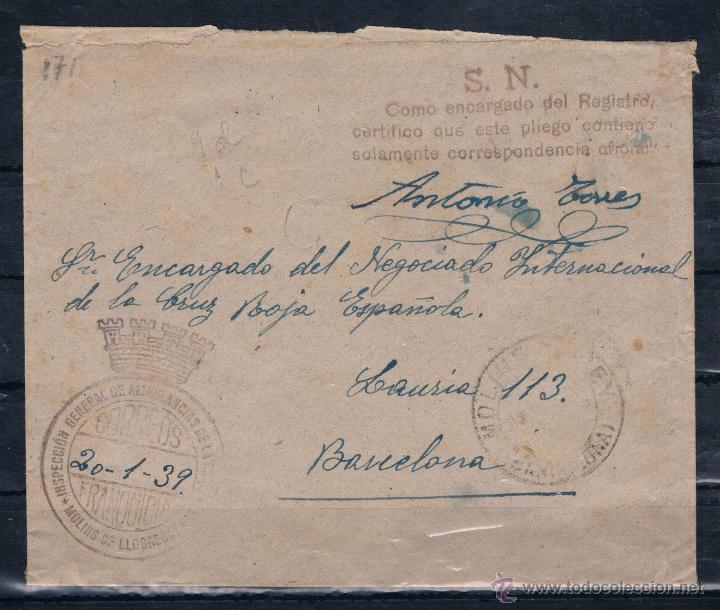 171
S. N.
Como encargado del Registro,
certifico que este pliego contiene
solamente correspondencia oficial.
Antonio Torres
Sr. Encargado del Negociado Internacional
de la Cruz Roja Española.
Lauria 113.
Barcelona
INSPECCIÓN GENERAL DE AMBULANCIAS DE
CORREOS
20-1-39
FRANQUICIA
MOLINS DE LLOBREGAT
todocoleccion.net